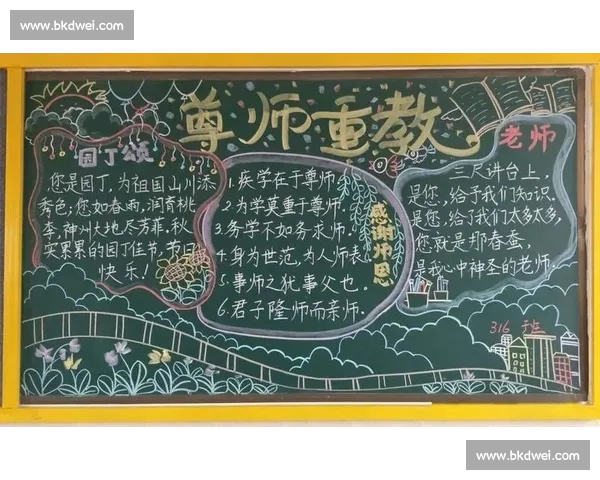 www.bkdwei.com
尊师重教
园丁颂
您是园丁,为祖国山川添
秀色,您如春雨,润育桃
李,神州大地尽芳菲,秋
实累累的园丁佳节,节日
快乐!
1.疾学在于尊师.
2.为学莫重于尊师.
3.务学不如务求师.
4.身为世范,为人师表
5.事师之犹事父也.
6.君子隆师而亲师.
感谢师恩
老师
三尺讲台上,
是您,给予我们知识.
是您,给了我们太多太多,
您就是那春蚕,
是我心中神圣的老师.
316班
www.bkdwei.com